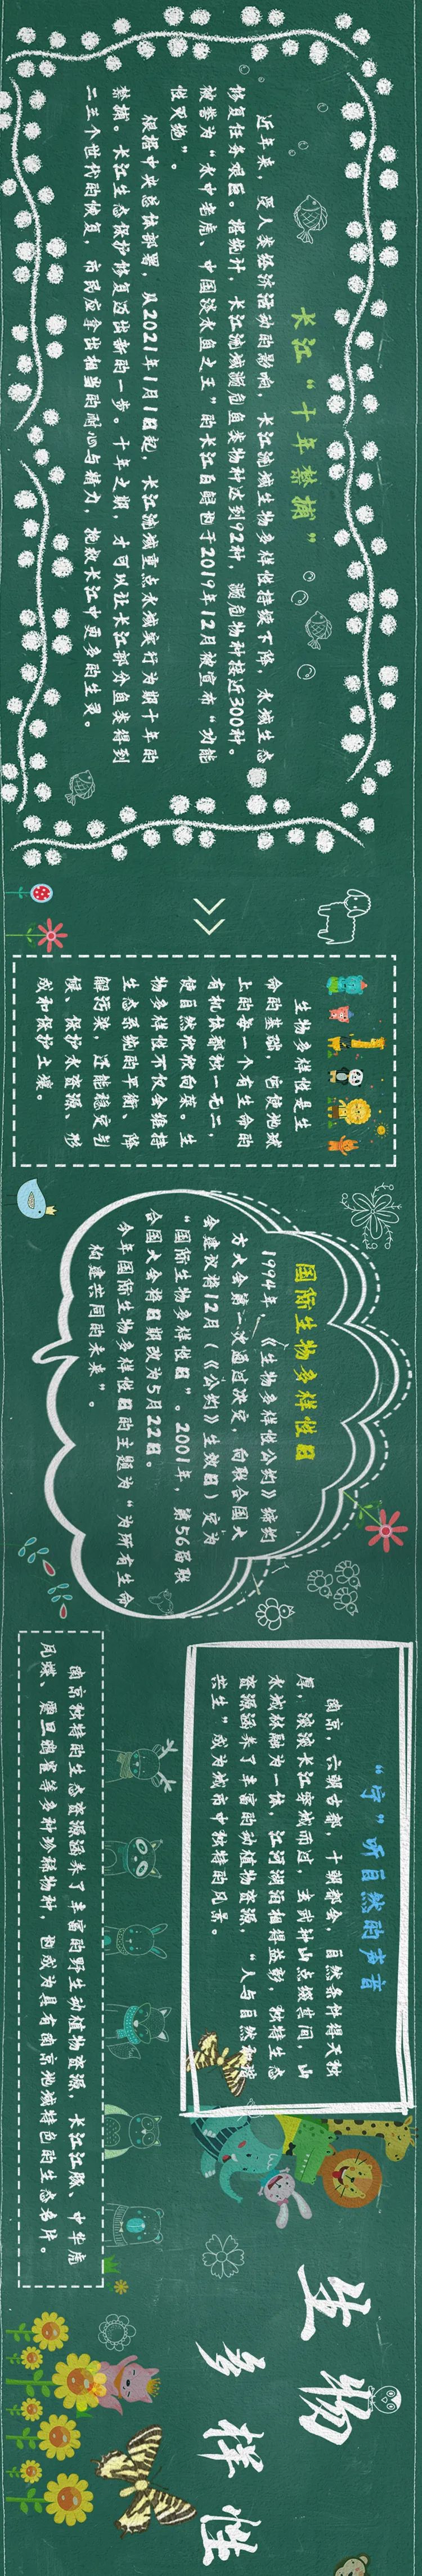 长江“十年禁捕”
近年来，受人类经济活动的影响，长江流域生物多样性持续下降，水域生态
修复任务艰巨。据统计，长江流域濒危鱼类物种达到92种，濒危物种接近300种。
被誉为“水中老虎、中国淡水鱼之王”的长江白鲟也于2019年12月被宣布“功能
性灭绝”。
根据中央总体部署，从2021年1月1日起，长江流域重点水域实行为期十年的
禁捕。长江生态保护修复迈出新的一步。十年之期，才可以让长江部分鱼类得到
二三个世代的恢复，市民应拿出相当的耐心与精力，拯救长江中更多的生灵。
生物多样性是生
命的基础，它使地球
上的每一个有生命的
有机体都独一无二，
使自然欣欣向荣。生
物多样性不仅会维持
生态系统的平衡、降
解污染，还能稳定气
候、保护水资源、形
成和保护土壤。
国际生物多样性日
1994年，《生物多样性公约》缔约
方大会第一次通过决定，向联合国大
会建议将12月（《公约》生效日）定为
“国际生物多样性日”。2001年，第56届联
合国大会将日期改为5月22日。
今年国际生物多样性日的主题为“为所有生命
构建共同的未来”。
“宁”听自然的声音
南京，六朝古都，十朝都会，自然条件得天独
厚，滚滚长江穿城而过，玄武钟山点缀其间，山
水城林融为一体，江河湖泊相得益彰，独特生态
资源涵养了丰富的动植物资源，“人与自然和谐
共生”成为城市中独特的风景。
南京独特的生态资源涵养了丰富的野生动植物资源，长江江豚、中华虎
凤蝶、震旦鸦雀等多种珍稀物种，也成为具有南京地域特色的生态名片。
生物
多样性